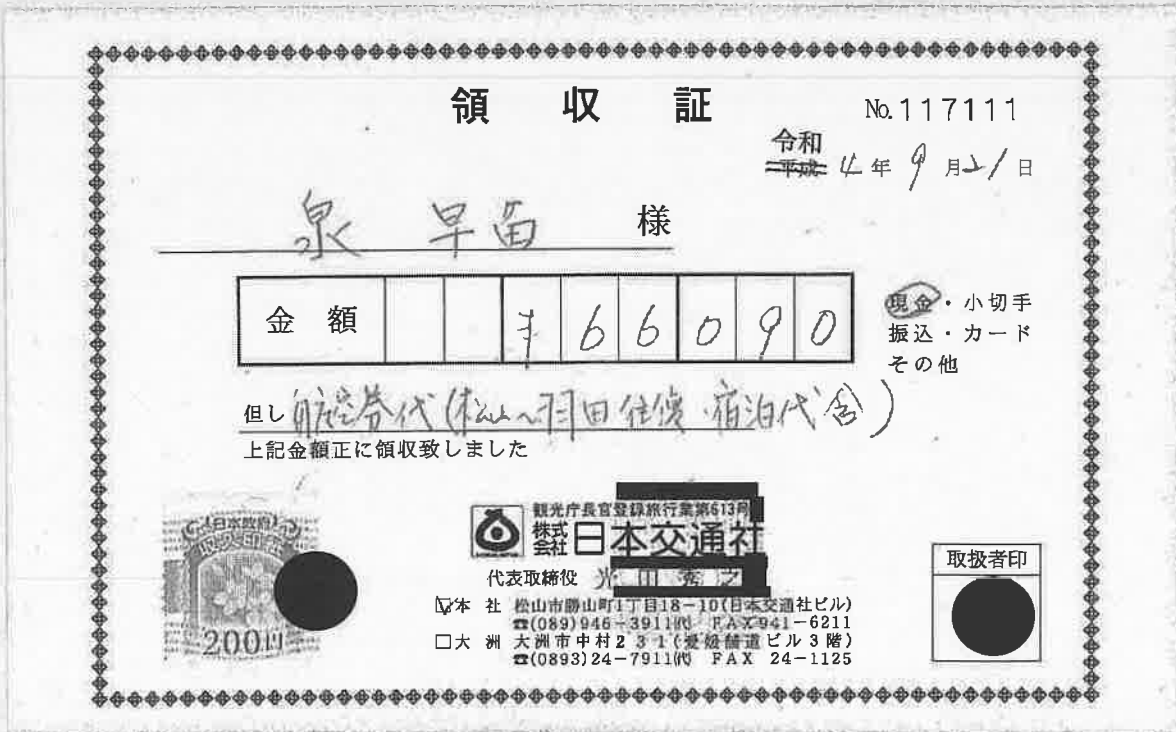 領収証
No.117111
令和
平成 4年9月21日
泉 早苗 様
金額 ¥66090
現金・小切手
振込・カード
その他
但し 航空券代(松山〜羽田往復・宿泊代含)
上記金額正に領収致しました
日本政府
収入印紙
200円
観光庁長官登録旅行業第613号
株式会社 日本交通社
代表取締役 光田秀之
☑本社 松山市勝山町1丁目18-10(日本交通社ビル)
☎(089)946-3911㈹ FAX941-6211
□大洲 大洲市中村231(愛媛舗道ビル3階)
☎(0893)24-7911㈹ FAX 24-1125
取扱者印